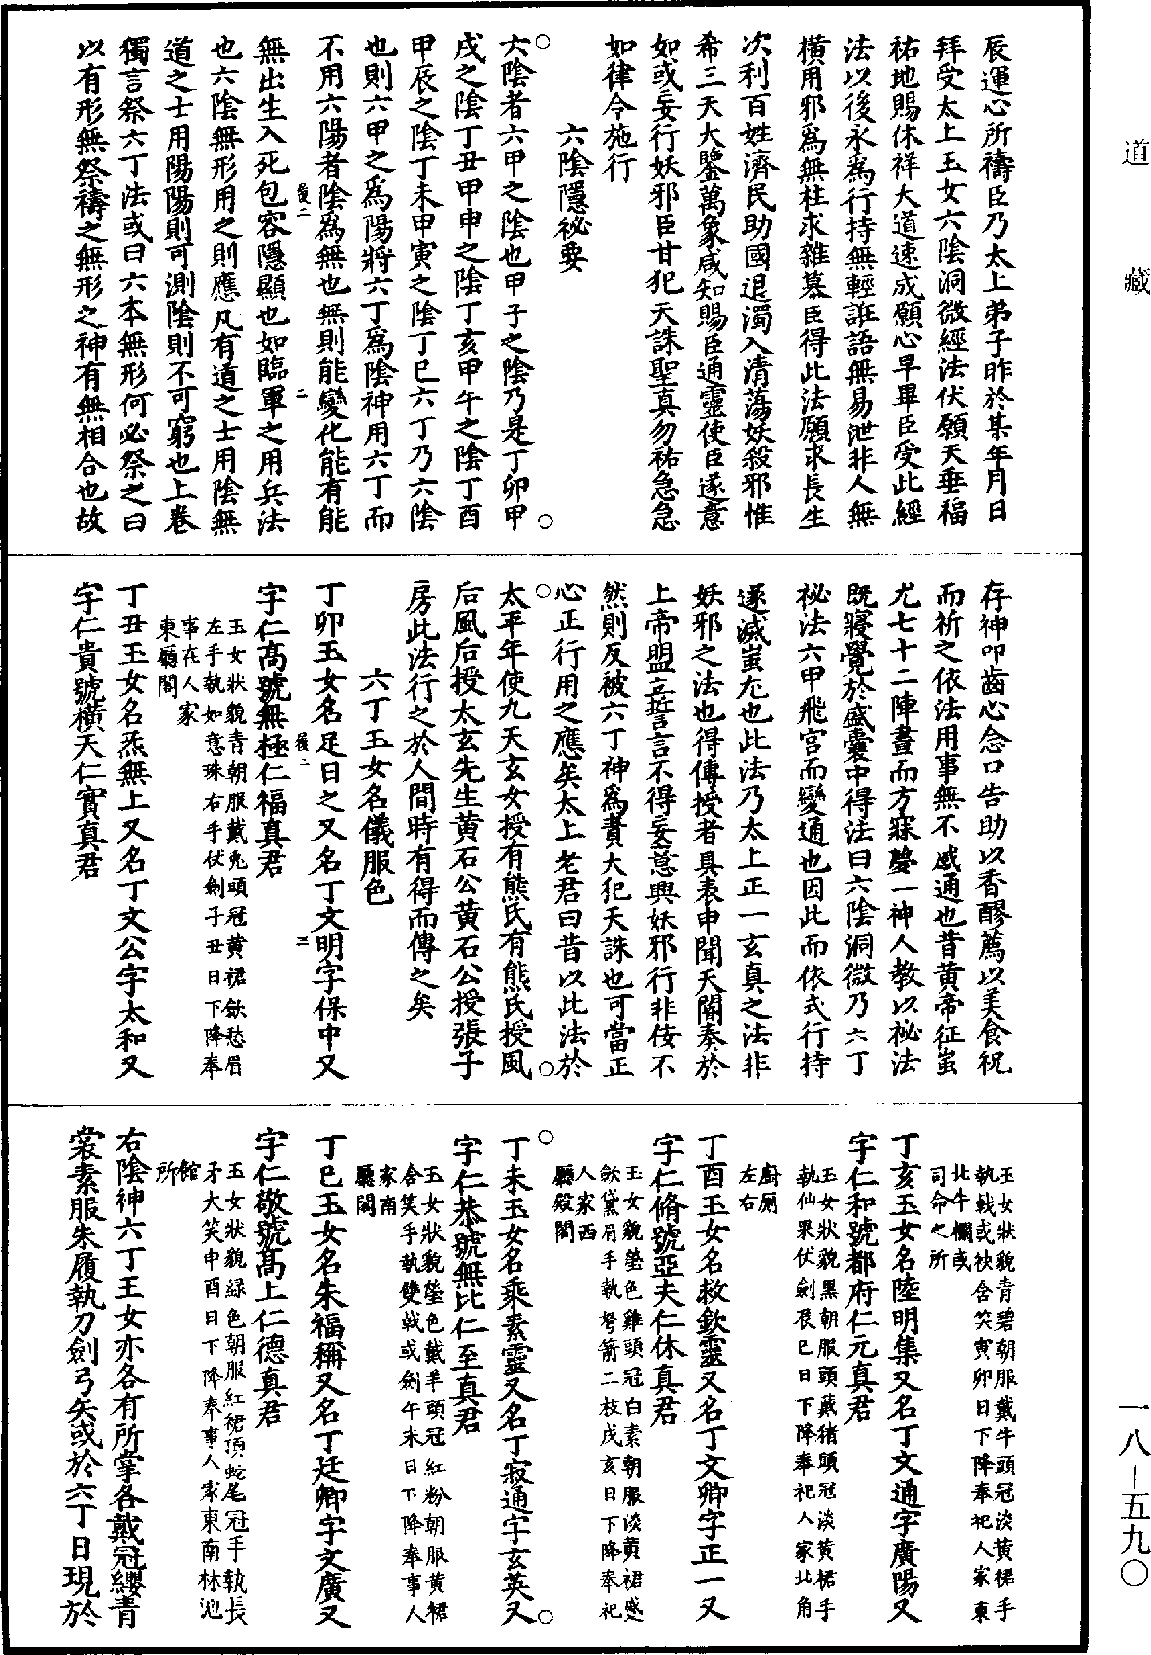 道藏
一八—五九〇
辰運心所禱臣乃太上弟子昨於某年月日
拜受太上玉女六陰洞微經法伏願天垂福
祐地賜休祥大道速成願心早畢臣受此經
法以後永爲行持無輕誑語無易泄非人無
橫用邪爲無枉求雜慕臣得此法願求長生
次利百姓濟民助國退濁入清蕩妖殺邪惟
希三天大鑒萬象咸知賜臣通靈使臣遂意
如或妄行妖邪臣甘犯天誅聖真勿祐急急
如律令施行
六陰隱祕要
六陰者六甲之陰也甲子之陰乃是丁卯甲
戌之陰丁丑甲申之陰丁亥甲午之陰丁酉
甲辰之陰丁未甲寅之陰丁巳六丁乃六陰
也則六甲之爲陽將六丁爲陰神用六丁而
不用六陽者陰爲無也無則能變化能有能
後二 二
無出生入死包容隱顯也如臨軍之用兵法
也六陰無形用之則應凡有道之士用陰無
道之士用陽陽則可測陰則不可窮也上卷
獨言祭六丁法或曰六本無形何必祭之曰
以有形無祭禱之無形之神有無相合也故
存神叩齒心念口告助以香醪薦以美食祝
而祈之依法用事無不感通也昔黃帝征蚩
尤七十二陣晝而方寐夢一神人教以祕法
既寢覺於盛囊中得法曰六陰洞微乃六丁
祕法六甲飛宮而變通也因此而依式行持
遂滅蚩尤也此法乃太上正一玄真之法非
妖邪之法也得傳授者具表申聞天闕奏於
上帝盟立誓言不得妄意興妖邪行非侫不
然則反被六丁神爲責大犯天誅也可當正
心正行用之應矣太上老君曰昔以此法於
太平年使九天玄女授有熊氏有熊氏授風
后風后授太玄先生黃石公黃石公授張子
房此法行之於人間時有得而傳之矣
六丁玉女名儀服色
丁卯玉女名足日之又名丁文明字保中又
後二 三
字仁高號無極仁福真君
玉女狀貌青朝服戴兔頭冠黃裙斂愁眉
左手執如意珠右手伏劍子丑日下降奉
事在人家
東廳閣
丁丑玉女名炁無上又名丁文公字太和又
字仁貴號橫天仁實真君
玉女狀貌青碧朝服戴牛頭冠淡黃裙手
執戟或袂含笑寅卯日下降奉祀人家東
北牛欄或
司命之所
丁亥玉女名陸明集又名丁文通字廣陽又
字仁和號都府仁元真君
玉女狀貌黑朝服頭戴猪頭冠淡黃裙手
執仙果伏劍辰巳日下降奉祀人家北角
廚厠
左右
丁酉玉女名救欽靈又名丁文卿字正一又
字仁脩號亞夫仁休真君
玉女貌瑩色雞頭冠白素朝服淡黃裙蹙
斂黛眉手執弩箭二枝戌亥日下降奉祀
人家西
廳殿閣
丁未玉女名乘素靈又名丁寂通字玄英又
字仁恭號無比仁至真君
玉女狀貌瑩色戴羊頭冠紅粉朝服黃裙
含笑手執雙戟或劍午未日下降奉事人
家南
廳閣
丁巳玉女名朱福稱又名丁廷卿字文廣又
字仁敬號高上仁德真君
玉女狀貌緑色朝服紅裙頂蛇尾冠手執長
矛大笑申酉日下降奉事人家東南林池
館
所
右陰神六丁玉女亦各有所掌各戴冠纓青
裳素服朱履執刀劍弓矢或於六丁日現於